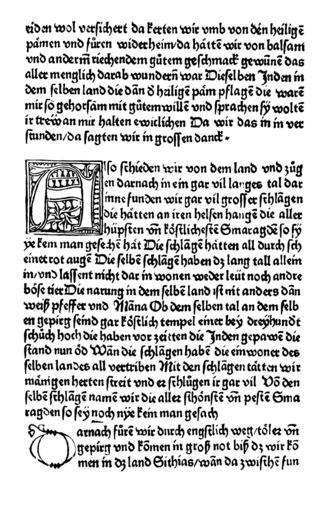 eiden wol versichert da kerten wir vmb von dēn heiligē
pāmen vnd fůren widerheim/da hāttē wir von balsam
vnd andern̄ riechendem gůtem geschmack gewūnē das
aller menglich darab wundern̄ war Dieselben Jnden in
dem selben land die dān d heiligē pām pflagē die warē
mir so gehorsām mit gůtemwillē vnd sprachen sy woltē
ir trew an mir halten ewilichen Da wir das in in ver
stunden/da sagten wir in grossen danck·
Also schieden wir von dem land vnd zůg
en darnach in ein gar vil langes tal dar
inne funden wir gar vil grosser schlāgen
die hātten an iren helsen hangē die aller
hüpsten vn̄ kōstlichestē Smaragdē so sy
ye kem man gesehē hāt Die schlāgē hātten all durch sch
eine rot augē Die selbē schlāgē haben dz lang tall allein
in/vnd lassent nicht dar in wonen weder leüt noch andre
bōse tier Die narung in dem selbē land ist nit anders dān
weiß pfeffer vnd Māna Ob dem selben tal an dem selb
en gepirg seind gar kōstlich tempel einer bey dreyhundt
schůch hoch die haben vor zeitten die Jnden gepawē die
stand nun ōd Wān die schlāgen habē die einwoner des
selben landes all vertriben Mit den schlāgen tātten wir
mānigen herten streit vnd er schlůgen ir gar vil Vō den
selbē schlāgē namē wir die aller schōnstē vn̄ pestē Sma
ragden so sey noch nye kein man gesach
Darnach fůrē wir durch engstlich weg/tōler vn̄
gepirg vnd kōmen in groß not biß dz wir kō
men in dz land Sithias/wān da zwischē fun